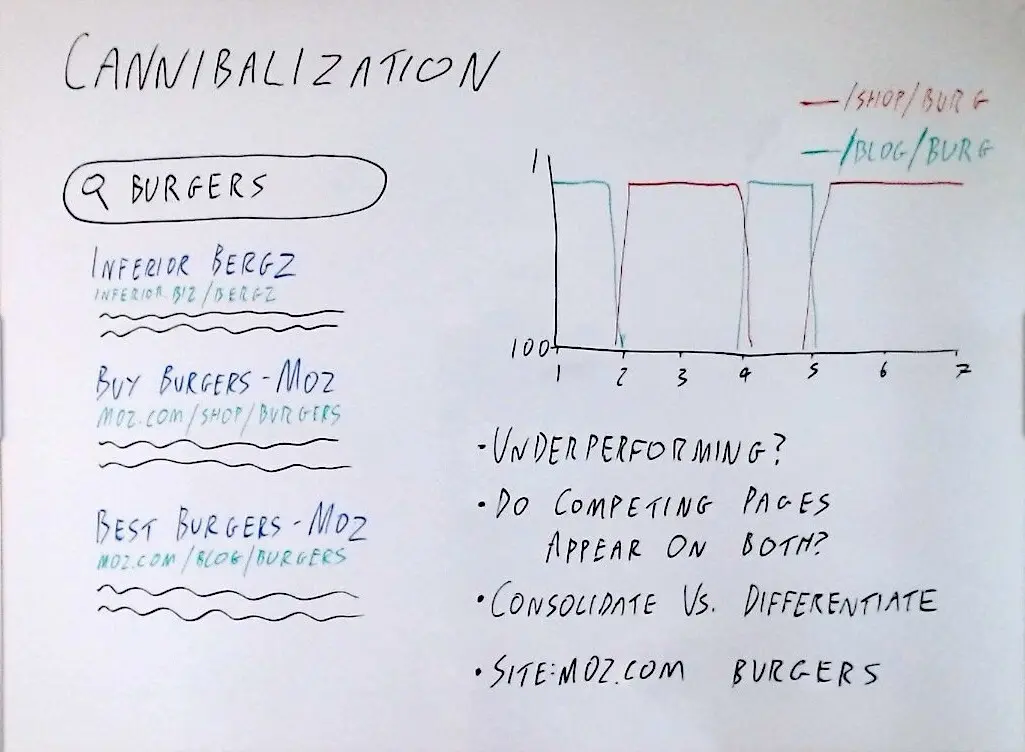 CANNIBALIZATION
BURGERS
INFERIOR BERGZ
INFERIOR.BIZ/BERGZ
BUY BURGERS - MOZ
MOZ.COM/SHOP/BURGERS
BEST BURGERS - MOZ
MOZ.COM/BLOG/BURGERS
/SHOP/BURG
/BLOG/BURG
1
100
1 2 3 4 5 6 7
• UNDERPERFORMING?
• DO COMPETING PAGES
APPEAR ON BOTH?
• CONSOLIDATE VS. DIFFERENTIATE
• SITE:MOZ.COM BURGERS